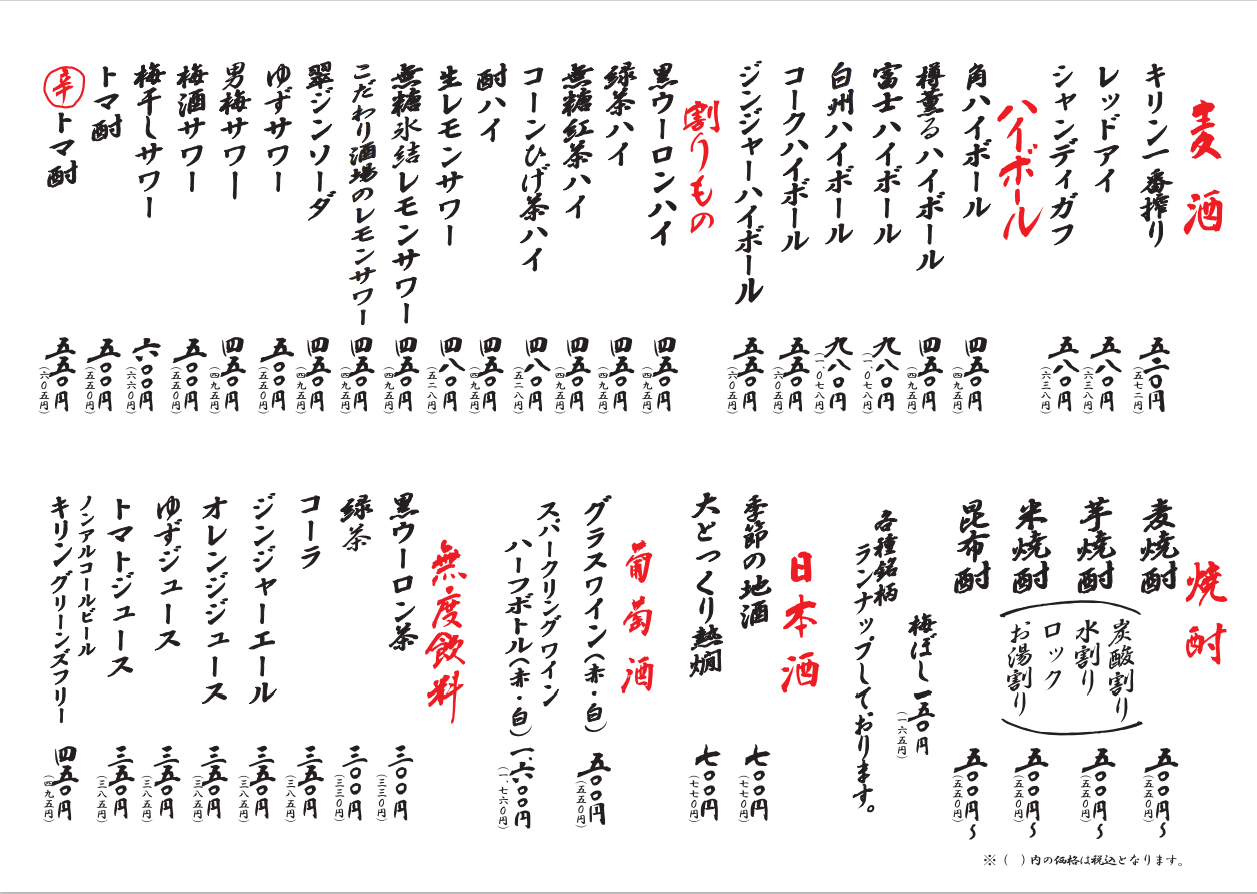 麦酒
キリン一番搾り 五二〇円
(五七二円)
レッドアイ 五八〇円
(六三八円)
シャンディガフ 五八〇円
(六三八円)
ハイボール
角ハイボール 四五〇円
(四九五円)
樽薫るハイボール 四五〇円
(四九五円)
富士ハイボール 九八〇円
(一、〇七八円)
白州ハイボール 九八〇円
(一、〇七八円)
コークハイボール 五五〇円
(六〇五円)
ジンジャーハイボール 五五〇円
(六〇五円)
割りもの
黒ウーロンハイ 四五〇円
(四九五円)
緑茶ハイ 四五〇円
(四九五円)
無糖紅茶ハイ 四五〇円
(四九五円)
コーンひげ茶ハイ 四八〇円
(五二八円)
酎ハイ 四五〇円
(四九五円)
生レモンサワー 四八〇円
(五二八円)
無糖氷結レモンサワー 四五〇円
(四九五円)
こだわり酒場のレモンサワー 四五〇円
(四九五円)
翠ジンソーダ 四五〇円
(四九五円)
ゆずサワー 五〇〇円
(五五〇円)
男梅サワー 四五〇円
(四九五円)
梅酒サワー 五〇〇円
(五五〇円)
梅干しサワー 六〇〇円
(六六〇円)
トマ酎 五〇〇円
(五五〇円)
辛トマ酎 五五〇円
(六〇五円)
焼酎
麦焼酎 五〇〇円〜
(五五〇円)
芋焼酎 五〇〇円〜
(五五〇円)
米焼酎 五〇〇円〜
(五五〇円)
昆布酎 五〇〇円〜
(五五〇円)
(炭酸割り
水割り
ロック
お湯割り)
梅ぼし 一五〇円
(一六五円)
各種銘柄
ランナップしております。
日本酒
季節の地酒 七〇〇円
(七七〇円)
大とっくり熱燗 七〇〇円
(七七〇円)
葡萄酒
グラスワイン(赤・白) 五〇〇円
(五五〇円)
スパークリングワイン
ハーフボトル(赤・白) 一、六〇〇円
(一、七六〇円)
無・度飲料
黒ウーロン茶 三〇〇円
(三三〇円)
緑茶 三〇〇円
(三三〇円)
コーラ 三五〇円
(三八五円)
ジンジャーエール 三五〇円
(三八五円)
オレンジジュース 三五〇円
(三八五円)
ゆずジュース 三五〇円
(三八五円)
トマトジュース 三五〇円
(三八五円)
ノンアルコールビール
キリングリーンズフリー 四五〇円
(四九五円)
※( )内の価格は税込となります。